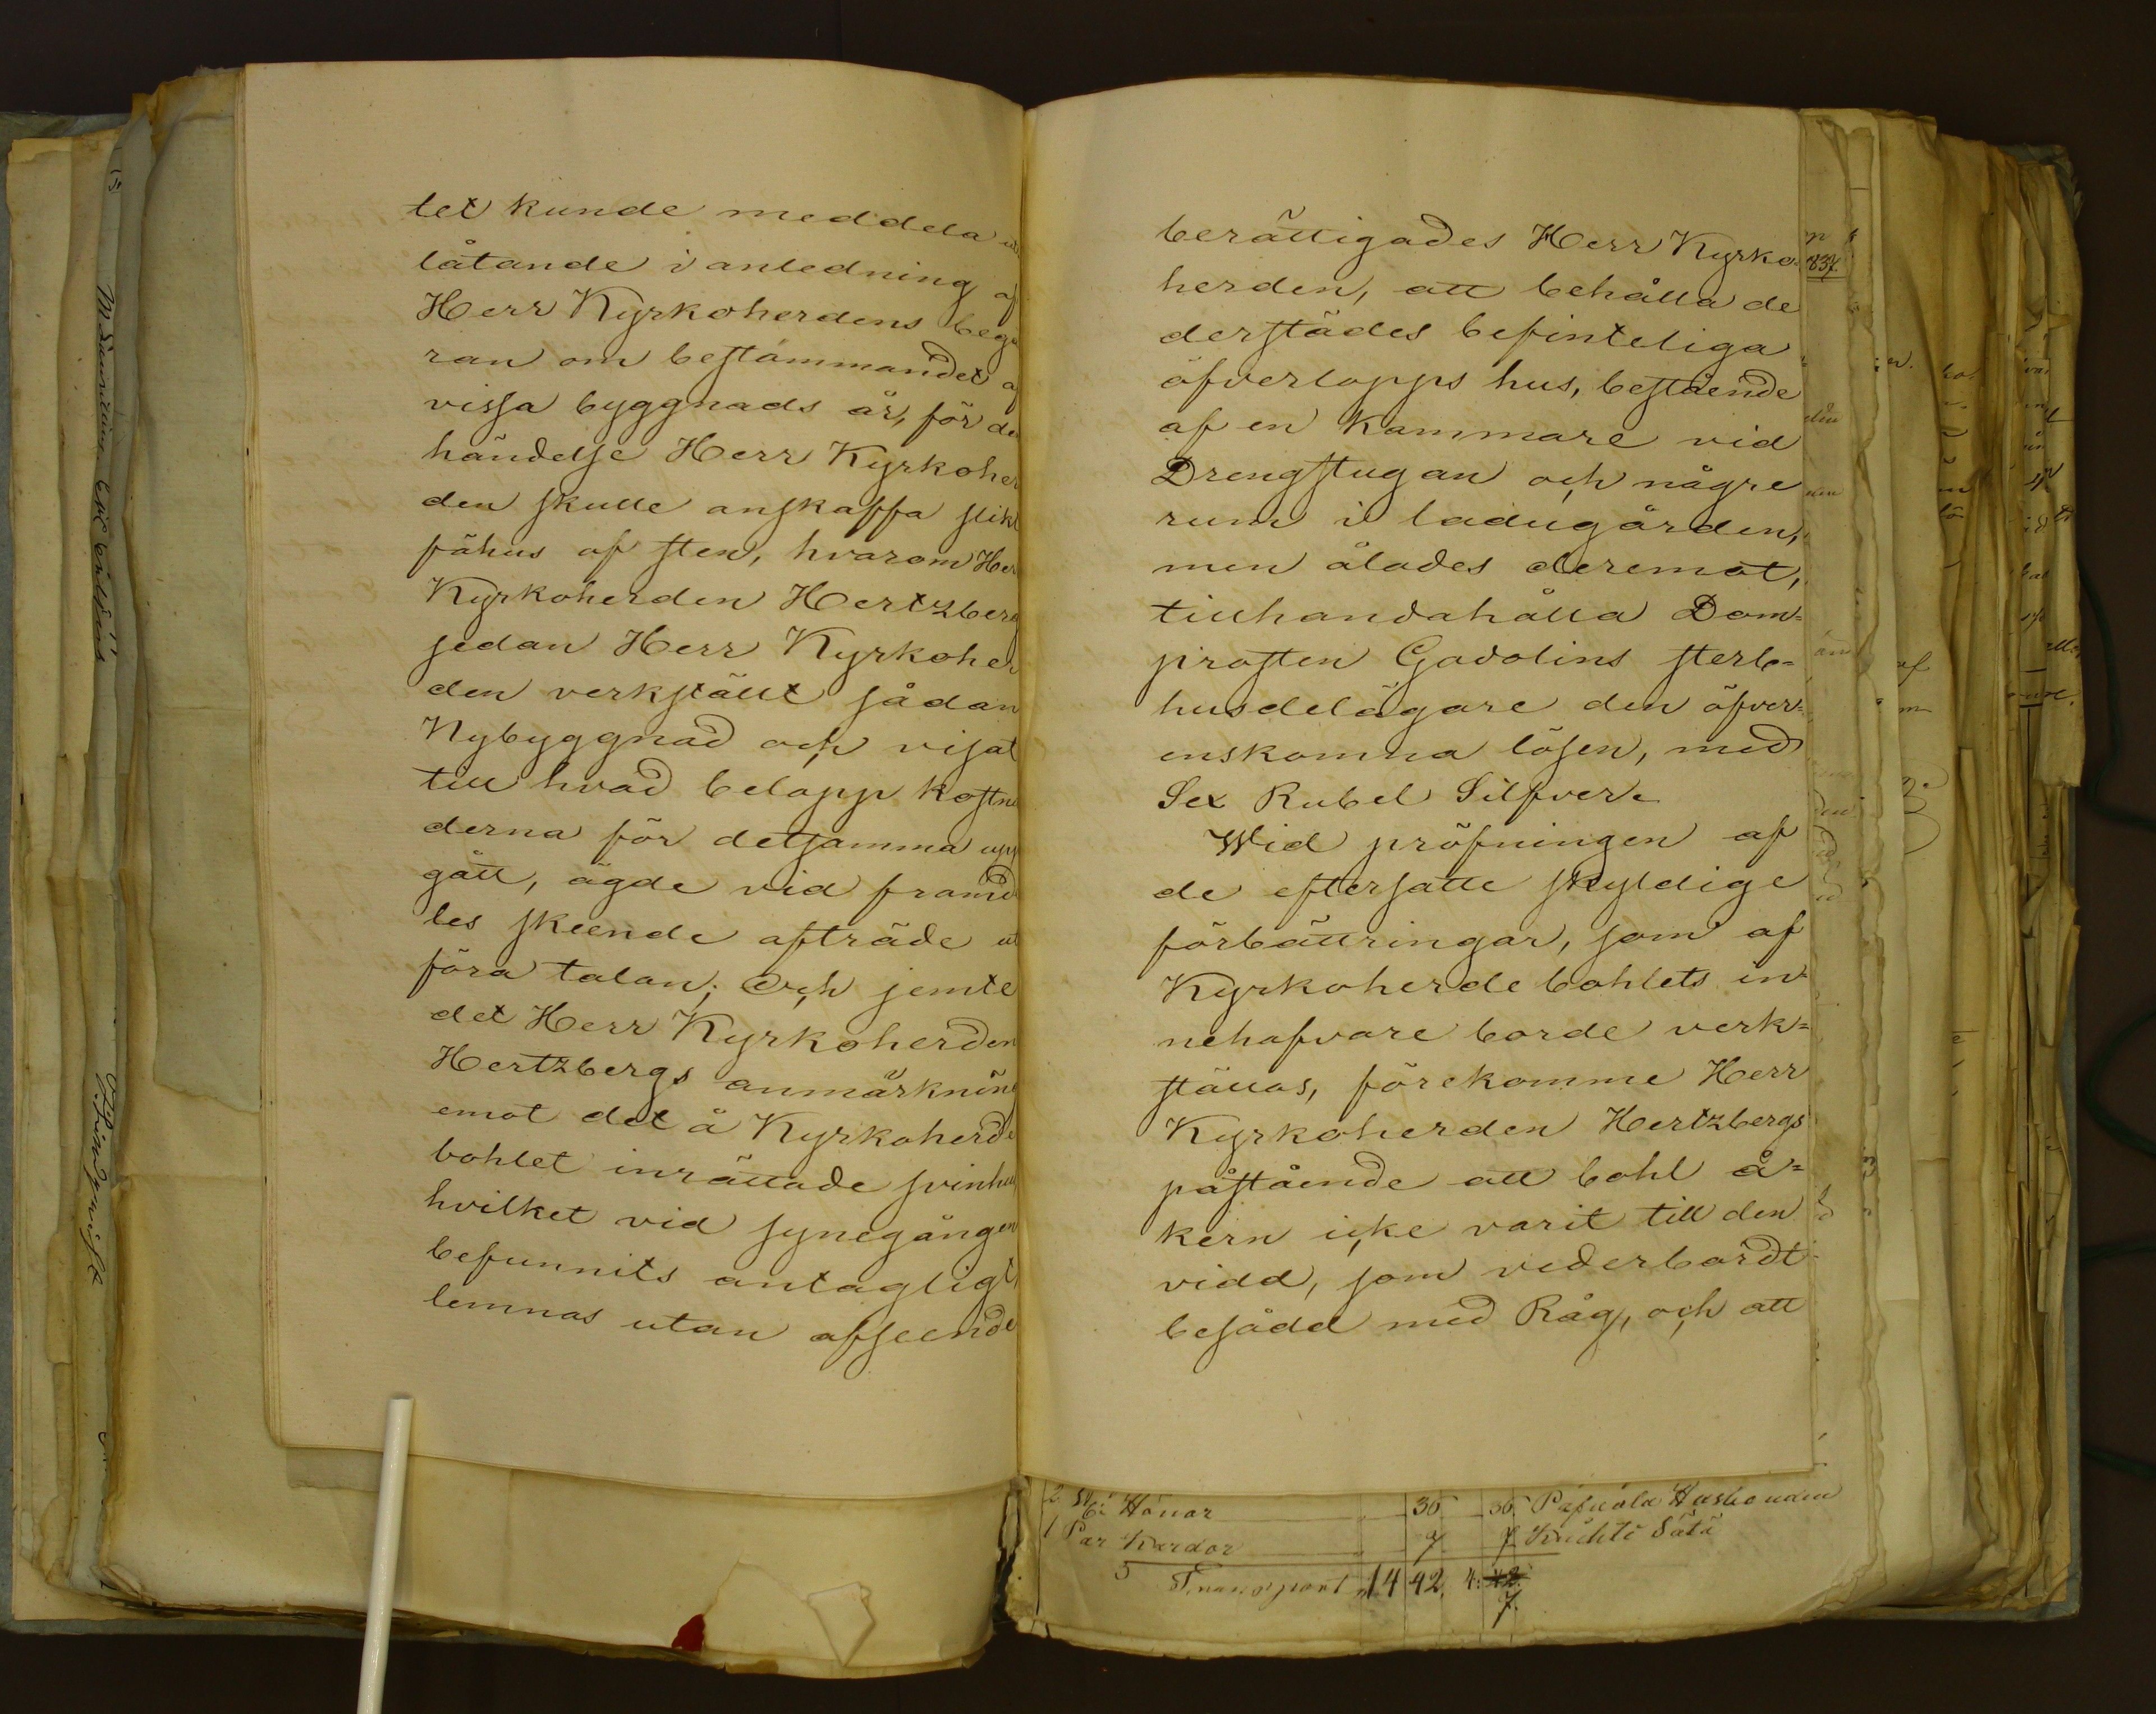 tet kunde meddela ut
låtande i anledning af
Herr Kyrkoherdens begä
ran om bestämmandet af
vissa byggnads år, för den
händelse Herr Kyrkoher
den skulle anskaffa slikt
fähus af sten, hvarom Her
Kyrkoherden Hertzberg
sedan Herr Kyrkoher
den verkställt sådan
Nybyggnad och visat
till hvad belopp kostna
derna för detsamma upp
gått, ägde vid framde
les skeende afträde ut
föra talan; Och jemte
det Herr Kyrkoherden
Hertzbergs anmärkning
emot det å Kyrkoherde
bohlet inrättade svinhus
hvilket vid synegången
befunnits antagligt,
lemnas utan afseende
berättigades Herr Kyrko-
herden, att behålla de
derstädes befinteliga
öfverlopps hus, bestående
af en Kammare vid
Drengstugan och någre
rum i ladugården,
men ålades deremot,
tillhandahålla Dom=
prosten Gadolins sterb=
husdelägare den öfver=
enskomna lösen, med
Sex Rubel Silfver.
Wid pröfningen af
de eftersatte skyldige
förbättringar, som af
Kyrkoherde bohlets in=
nehafvare borde verk=
ställas, förekomme Herr
Kyrkoherden Hertzbergs
påstående att bohl å=
kern icke varit till den
vidd, som vederbordt
besådd med Råg, och att
837.
2 St Hönor 36 36 Husbonden
1 Par Kardor 7 7
Transport 14 42. 4: 42.
7.